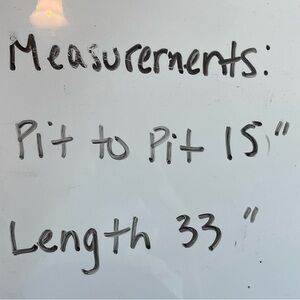 Measurements:
Pit to Pit 15"
Length 33"